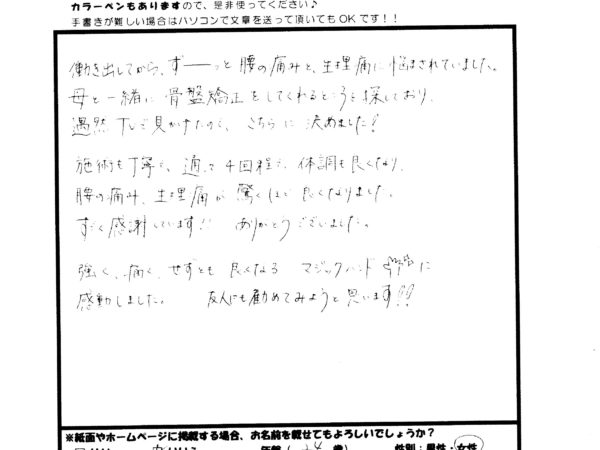 カラーペンもありますので、是非使ってください♪
手書きが難しい場合はパソコンで文章を送って頂いてもOKです！！
働き出してから、ずーーっと腰の痛みと、生理痛に悩まされていました。
母と一緒に骨盤矯正をしてくれるところを探しており、
偶然TVで見かけたので、こちらに決めました！
施術も丁寧で、通って4回程で体調も良くなり、
腰の痛み、生理痛が驚くほど良くなりました。
すごく感謝しています!! ありがとうございました。
強く、痛く、せずとも良くなるマジックハンドに
感動しました。 友人にも勧めてみようと思います!!
※紙面やホームページに掲載する場合、お名前を載せてもよろしいでしょうか？
性別：男性・女性